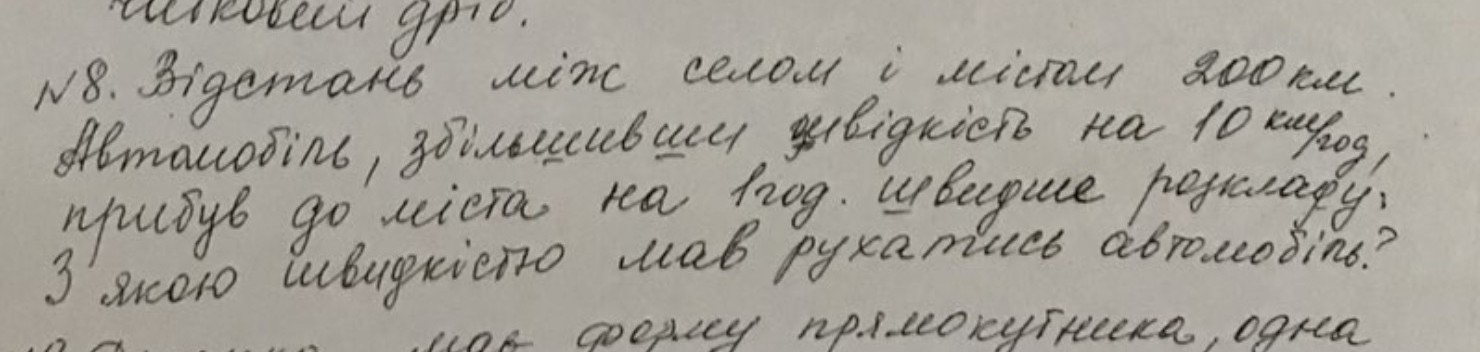 дріб.
№8. Відстань між селом і містом 200 км.
Автомобіль, збільшивши швідкість на 10 км/год,
прибув до міста на 1 год. швидше розкладу.
З якою швидкістю мав рухатись автомобіль?
має форму прямокутника, одна